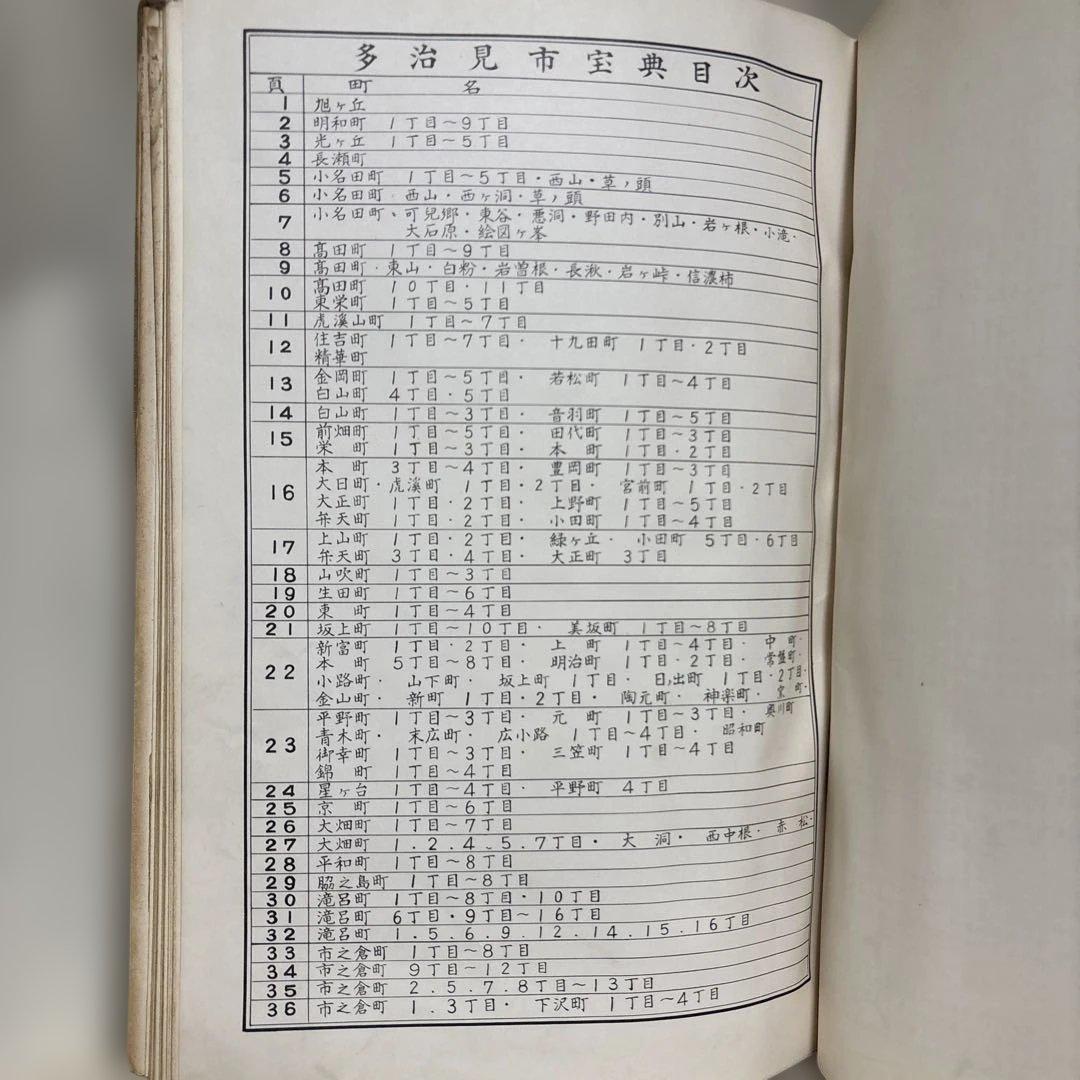 多治見市宝典目次
頁 町名
1 旭ヶ丘
2 明和町 1丁目～9丁目
3 光ヶ丘 1丁目～5丁目
4 長瀬町
5 小名田町 1丁目～5丁目・西山・草ノ頭
6 小名田町・西山・西ヶ洞・草ノ頭
7 小名田町、可児郷・東谷・悪洞・野田内・別山・岩ヶ根・小滝・
大石原・絵図ヶ峯
8 高田町 1丁目～9丁目
9 高田町・東山・白粉・岩曽根・長湫・岩ヶ峠・信濃柿
10 高田町 10丁目・11丁目
東栄町 1丁目～5丁目
11 虎溪山町 1丁目～7丁目
12 住吉町 1丁目～7丁目・ 十九田町 1丁目・2丁目
精華町
13 金岡町 1丁目～5丁目・ 若松町 1丁目～4丁目
白山町 4丁目・5丁目
14 白山町 1丁目～3丁目・ 音羽町 1丁目～5丁目
15 前畑町 1丁目～5丁目・ 田代町 1丁目～3丁目
栄町 1丁目～3丁目・ 本町 1丁目・2丁目
16 本町 3丁目～4丁目・ 豊岡町 1丁目～3丁目
大日町・虎溪町 1丁目・2丁目・ 宮前町 1丁目・2丁目
大正町 1丁目・2丁目・ 上野町 1丁目～5丁目
弁天町 1丁目・2丁目・ 小田町 1丁目～4丁目
17 上山町 1丁目・2丁目・ 緑ヶ丘・ 小田町 5丁目・6丁目
弁天町 3丁目・4丁目・ 大正町 3丁目
18 山吹町 1丁目～3丁目
19 生田町 1丁目～6丁目
20 東町 1丁目～4丁目
21 坂上町 1丁目～10丁目・ 美坂町 1丁目～8丁目
22 新富町 1丁目・2丁目・ 上町 1丁目～4丁目・ 中町・
本町 5丁目～8丁目・ 明治町 1丁目・2丁目・ 常盤町・
小路町・ 山下町・ 坂上町 1丁目・ 日ノ出町 1丁目・2丁目・
金山町・ 新町 1丁目・2丁目・ 陶元町・ 神楽町・ 室町・
23 平野町 1丁目～3丁目・ 元町 1丁目～3丁目・ 奥川町
青木町・ 末広町・ 広小路 1丁目～4丁目・ 昭和町
御幸町 1丁目～3丁目・ 三笠町 1丁目～4丁目
錦町 1丁目～4丁目
24 星ヶ台 1丁目～4丁目・ 平野町 4丁目
25 京町 1丁目～6丁目
26 大畑町 1丁目～7丁目
27 大畑町 1.2.4.5.7丁目・ 大洞・ 西中根・ 赤松・
28 平和町 1丁目～8丁目
29 脇之島町 1丁目～8丁目
30 滝呂町 1丁目～8丁目・10丁目
31 滝呂町 6丁目・9丁目～16丁目
32 滝呂町 1.5.6.9.12.14.15.16丁目
33 市之倉町 1丁目～8丁目
34 市之倉町 9丁目～12丁目
35 市之倉町 2.5.7.8丁目～13丁目
36 市之倉町 1.3丁目・ 下沢町 1丁目～4丁目